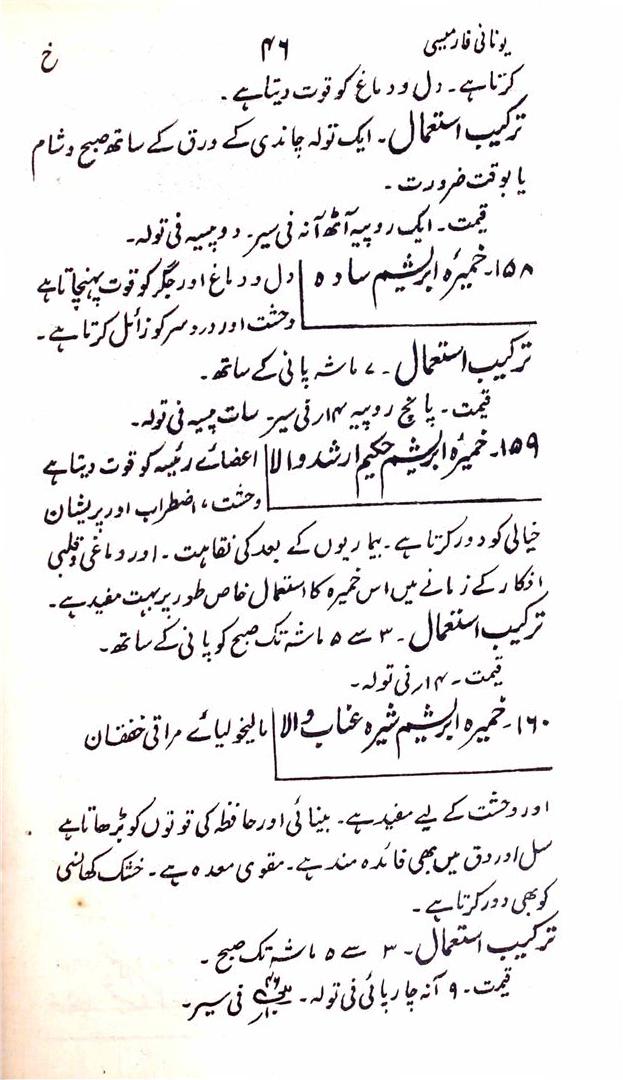 یونانی فارمیسی ۴۶ خ
کرتا ہے۔ دل و دماغ کو قوت دیتا ہے۔
ترکیب استعمال۔ ایک تولہ چاندی کے ورق کے ساتھ صبح و شام
یا بوقت ضرورت۔
قیمت۔ ایک روپیہ آٹھ آنہ فی سیر۔ دو پیسہ فی تولہ۔
۱۵۸۔ خمیرۂ ابریشم سادہ دل و دماغ اور جگر کو قوت پہنچاتا ہے
وحشت اور درد سر کو زائل کرتا ہے۔
ترکیب استعمال۔ ۷ ماشہ پانی کے ساتھ۔
قیمت۔ پانچ روپیہ ۱۴ار فی سیر۔ سات پیسہ فی تولہ۔
۱۵۹۔ خمیرۂ ابریشم حکیم ارشد والا اعضائے رئیسہ کو قوت دیتا ہے
وحشت، اضطراب اور پریشان
خیالی کو دور کرتا ہے۔ بیماریوں کے بعد کی نقاہت۔ اور دماغی و قلبی
افکار کے زمانے میں اس خمیرہ کا استعمال خاص طور پر بہت مفید ہے۔
ترکیب استعمال۔ ۳ سے ۵ ماشہ تک صبح کو پانی کے ساتھ۔
قیمت۔ ۱۴ار فی تولہ۔
۱۶۰۔ خمیرہ ابریشم شیرہ عناب والا مالیخولیائے مراقی خفقان
اور وحشت کے لیے مفید ہے۔ بینائی اور حافظہ کی قوتوں کو بڑھاتا ہے
سل اور دق میں بھی فائدہ مند ہے۔ مقوی معدہ ہے۔ خشک کھانسی
کو بھی دور کرتا ہے۔
ترکیب استعمال۔ ۳ سے ۵ ماشہ تک صبح۔
قیمت۔ ۹ آنہ چار پائی فی تولہ۔ فی سیر۔